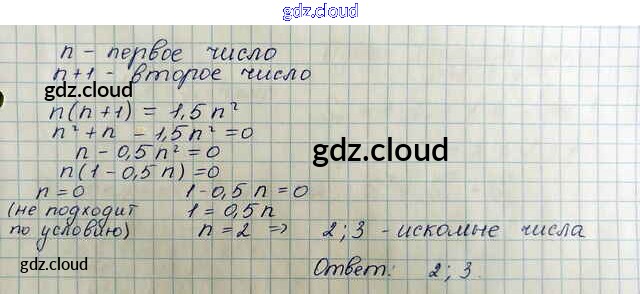 gdz.cloud
n - первое число
n+1 - второе число
gdz.cloud
n(n+1) = 1,5 n²
n² + n - 1,5 n² = 0
n - 0,5 n² = 0
gdz.cloud
n(1 - 0,5 n) = 0
n = 0 1 - 0,5 n = 0
(не подходит 1 = 0,5 n
по условию) n = 2 => 2; 3 - искомые числа
gdz.cloud
Ответ: 2; 3.